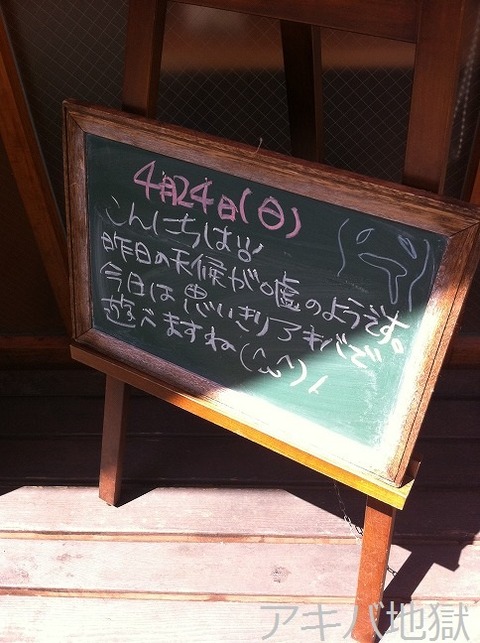 4月24日(日)
こんにちは!!
昨日の天候が嘘のようです。
今日は思いきりアキバで
遊べますね(^ω^)ノ
アキバ地獄